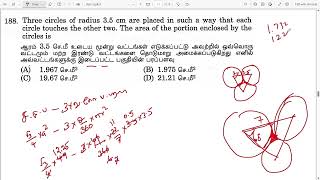 188. Three circles of radius 3.5 cm are placed in such a way that each
circle touches the other two. The area of the portion enclosed by the
circles is
ஆரம் 3.5 செ.மீ உடைய மூன்று வட்டங்கள் எடுக்கப்பட்டு அவற்றில் ஒவ்வொரு
வட்டமும் மற்ற இரண்டு வட்டங்களை தொடுமாறு அமைக்கப்படுகிறது எனில்
அவ்வட்டங்களுக்கு இடைப்பட்ட பகுதியின் பரப்பளவு
(A) 1.967 செ.மீ²
(B) 1.975 செ.மீ²
(C) 19.67 செ.மீ²
(D) 21.21 செ.மீ²
1.732
122
7
3.5